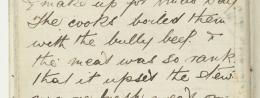 & make up for Xmas Day
The cooks boiled them
with the bully beef. &
the meat was so rank
that it upset the stew